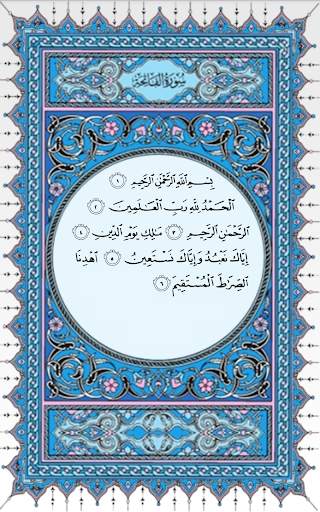 سورة الفاتحة
بسم الله الرحمن الرحيم ١
الحمد لله رب العلمين ٢
الرحمن الرحيم ٣ ملك يوم الدين ٤
إياك نعبد وإياك نستعين ٥ اهدنا
الصرط المستقيم ٦